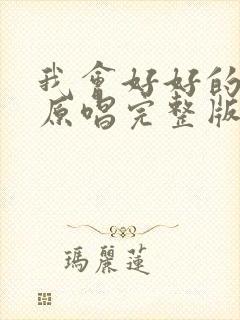 我會好好的
原唱完整版
瑪麗蓮